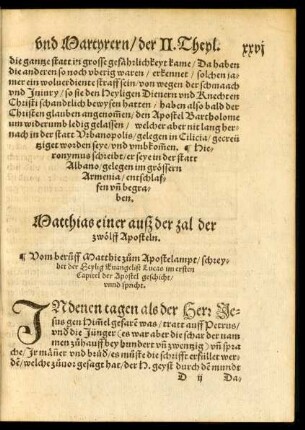 vnd Martyrern / der II. Theyl. xxvj
die gantze statt in grosse gefährlichkeyt kame / Da haben
die anderen so noch vberig waren / erkennet / solchen ja-
mer ein wolverdiente straff sein / von wegen der schmaach
vnd Iniury / so sie den Heyligen Dienern vnd Knechten
Christi schandtlich bewysen hatten / haben also bald der
Christen glauben angenom̃en / den Apostel Bartholome
um widerumb ledig gelassen / welcher aber nit lang her-
nach in der statt Vrbanopolis / gelegen in Cilicia / gecreü
tziget worden seye / vnd vmbkom̃en. ¶ Hie-
ronymus schreibt / er seye in der statt
Albano / gelegen im grössern
Armenia / entschlaf-
fen vñ begra-
ben.
Matthias einer auß der zal der
zwölff Aposteln.
¶ Vom berůff Matthie zům Apostelampt / schrey-
bet der Heylig Euangelist Lucas im ersten
Capitel der Apostel geschicht /
vnnd spricht.
IN denen tagen als der Herꝛ Je-
sus gen Him̃el gefarẽ was / tratt auff Petrus /
vnd die Jünger (es war aber die schar der na-
men zůhauff bey hundert vñ zwentzig) vñ spra
che / Jr mäner vnd brůd / es můste die schrifft erfüllet wer-
dẽ / welche zůuor gesagt hat / der H. geyst durch dẽ mundt
D ij Da-